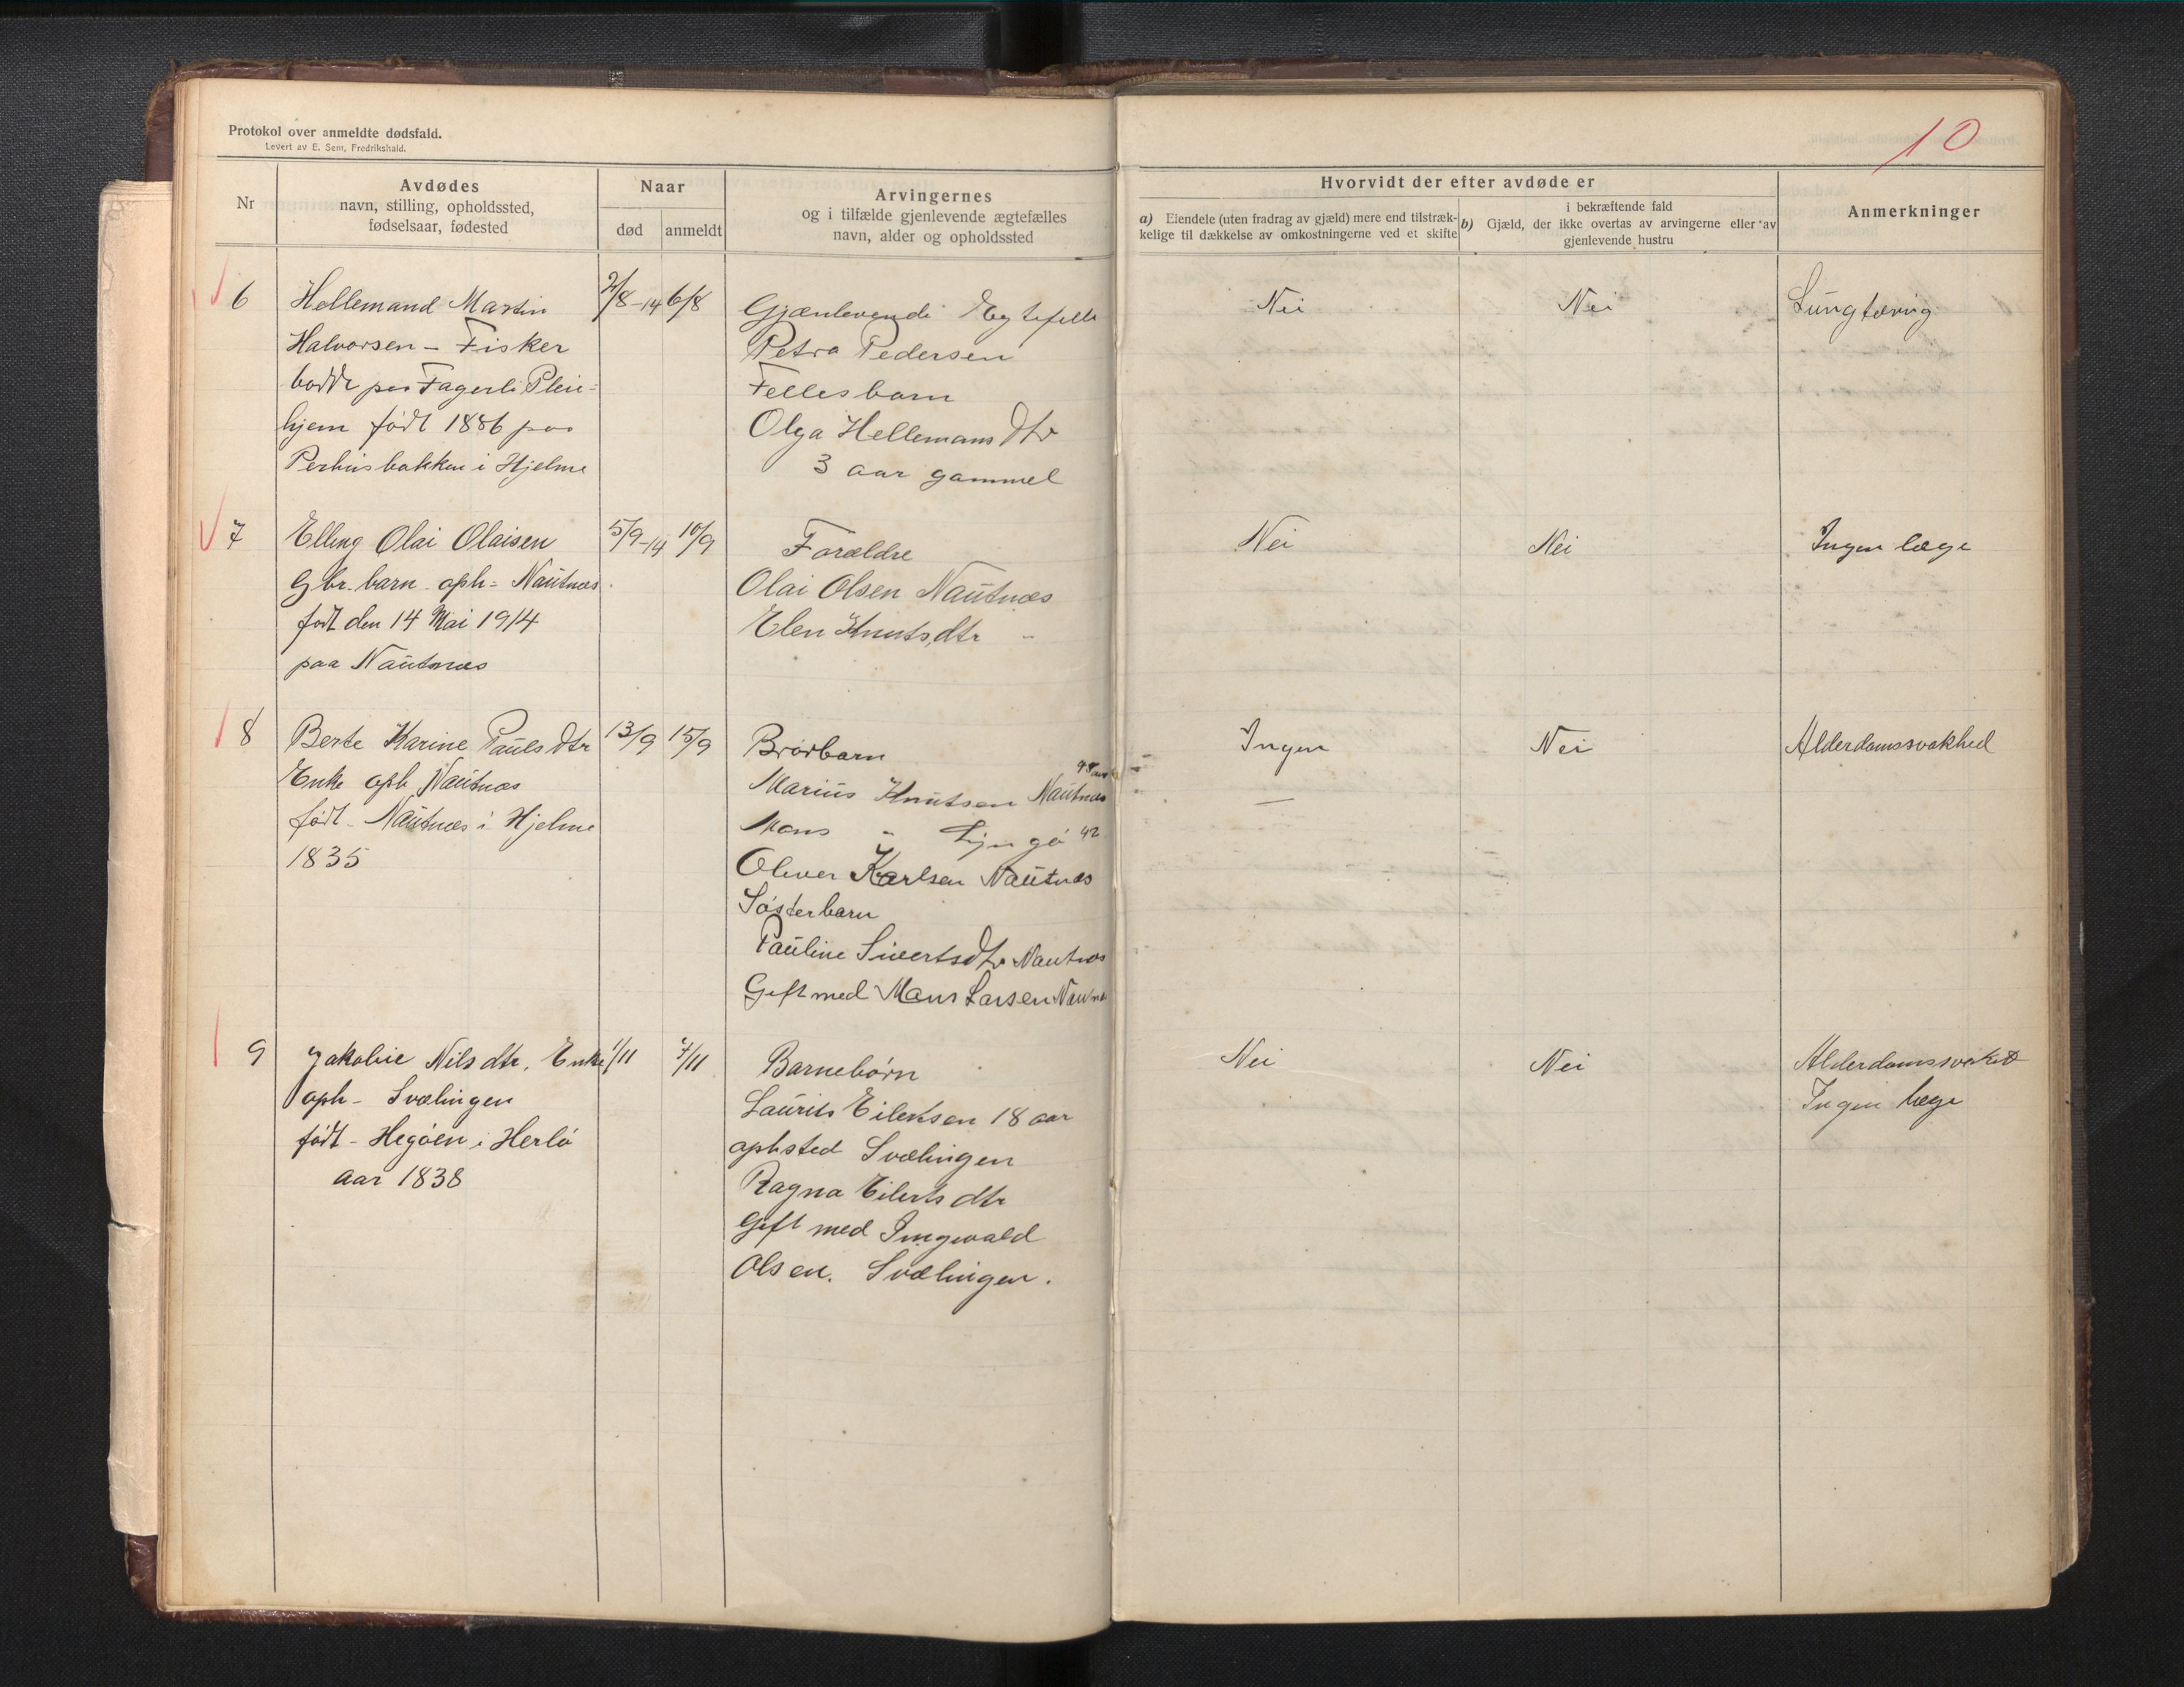 Protokol over anmeldte dødsfald.
Levert av E. Sem, Fredrikshald.
10
Nr
Avdødes
navn, stilling, opholdssted,
fødselsaar, fødested
Naar
død
anmeldt
Arvingernes
og i tilfælde gjenlevende ægtefælles
navn, alder og opholdssted
Hvorvidt der efter avdøde er
a) Eiendele (uten fradrag av gjæld) mere end tilstræk-
kelige til dækkelse av omkostningerne ved et skifte
i bekræftende fald
b) Gjæld, der ikke overtas av arvingerne eller av
gjenlevende hustru
Anmerkninger
6
Hellemand Martin
Halvorsen - Fisker
bodde paa Fagerli Pleie-
hjem født 1886 paa
Perhusbakken i Hjelme
2/8-14
6/8
Gjænlevende Egtefelle
Petra Pedersen
Fellesbarn
Olga Hellemans Dtr
3 aar gammel
Nei
Nei
Lungtæring
7
Elling Olai Olaisen
Gbr. barn oph- Nautnæs
født den 14 Mai 1914
paa Nautnæs
5/9-14
10/9
Forældre
Olai Olsen Nautnæs
Elen Knutsdtr -
Nei
Nei
Ingen læge
8
Berte Karine Pauls Dtr
Enke oph Nautnæs
født - Nautnæs i Hjelme
1835
13/9
15/9
Brørbarn
48 aar
Marius Knutsen Nautnæs
Mons " Lyngø 42
Oliver Karlsen Nautnæs
Søsterbarn
Pauline Siverts Dtr Nautnæs
Gift med Mons Larsen Nautnæs
Ingen
Nei
Alderdomssvakhed
9
Jakobie Nilsdtr. Enke
oph - Svælingen
født - Hegøen i Herlø
aar 1838
1/11
7/11
Barnebørn
Laurits Eilertsen 18 aar
ophsted Svælingen
Ragna Eilerts dtr
Gift med Ingvald
Olsen. Svælingen.
Nei
Nei
Alderdomssvakhet
Ingen læge